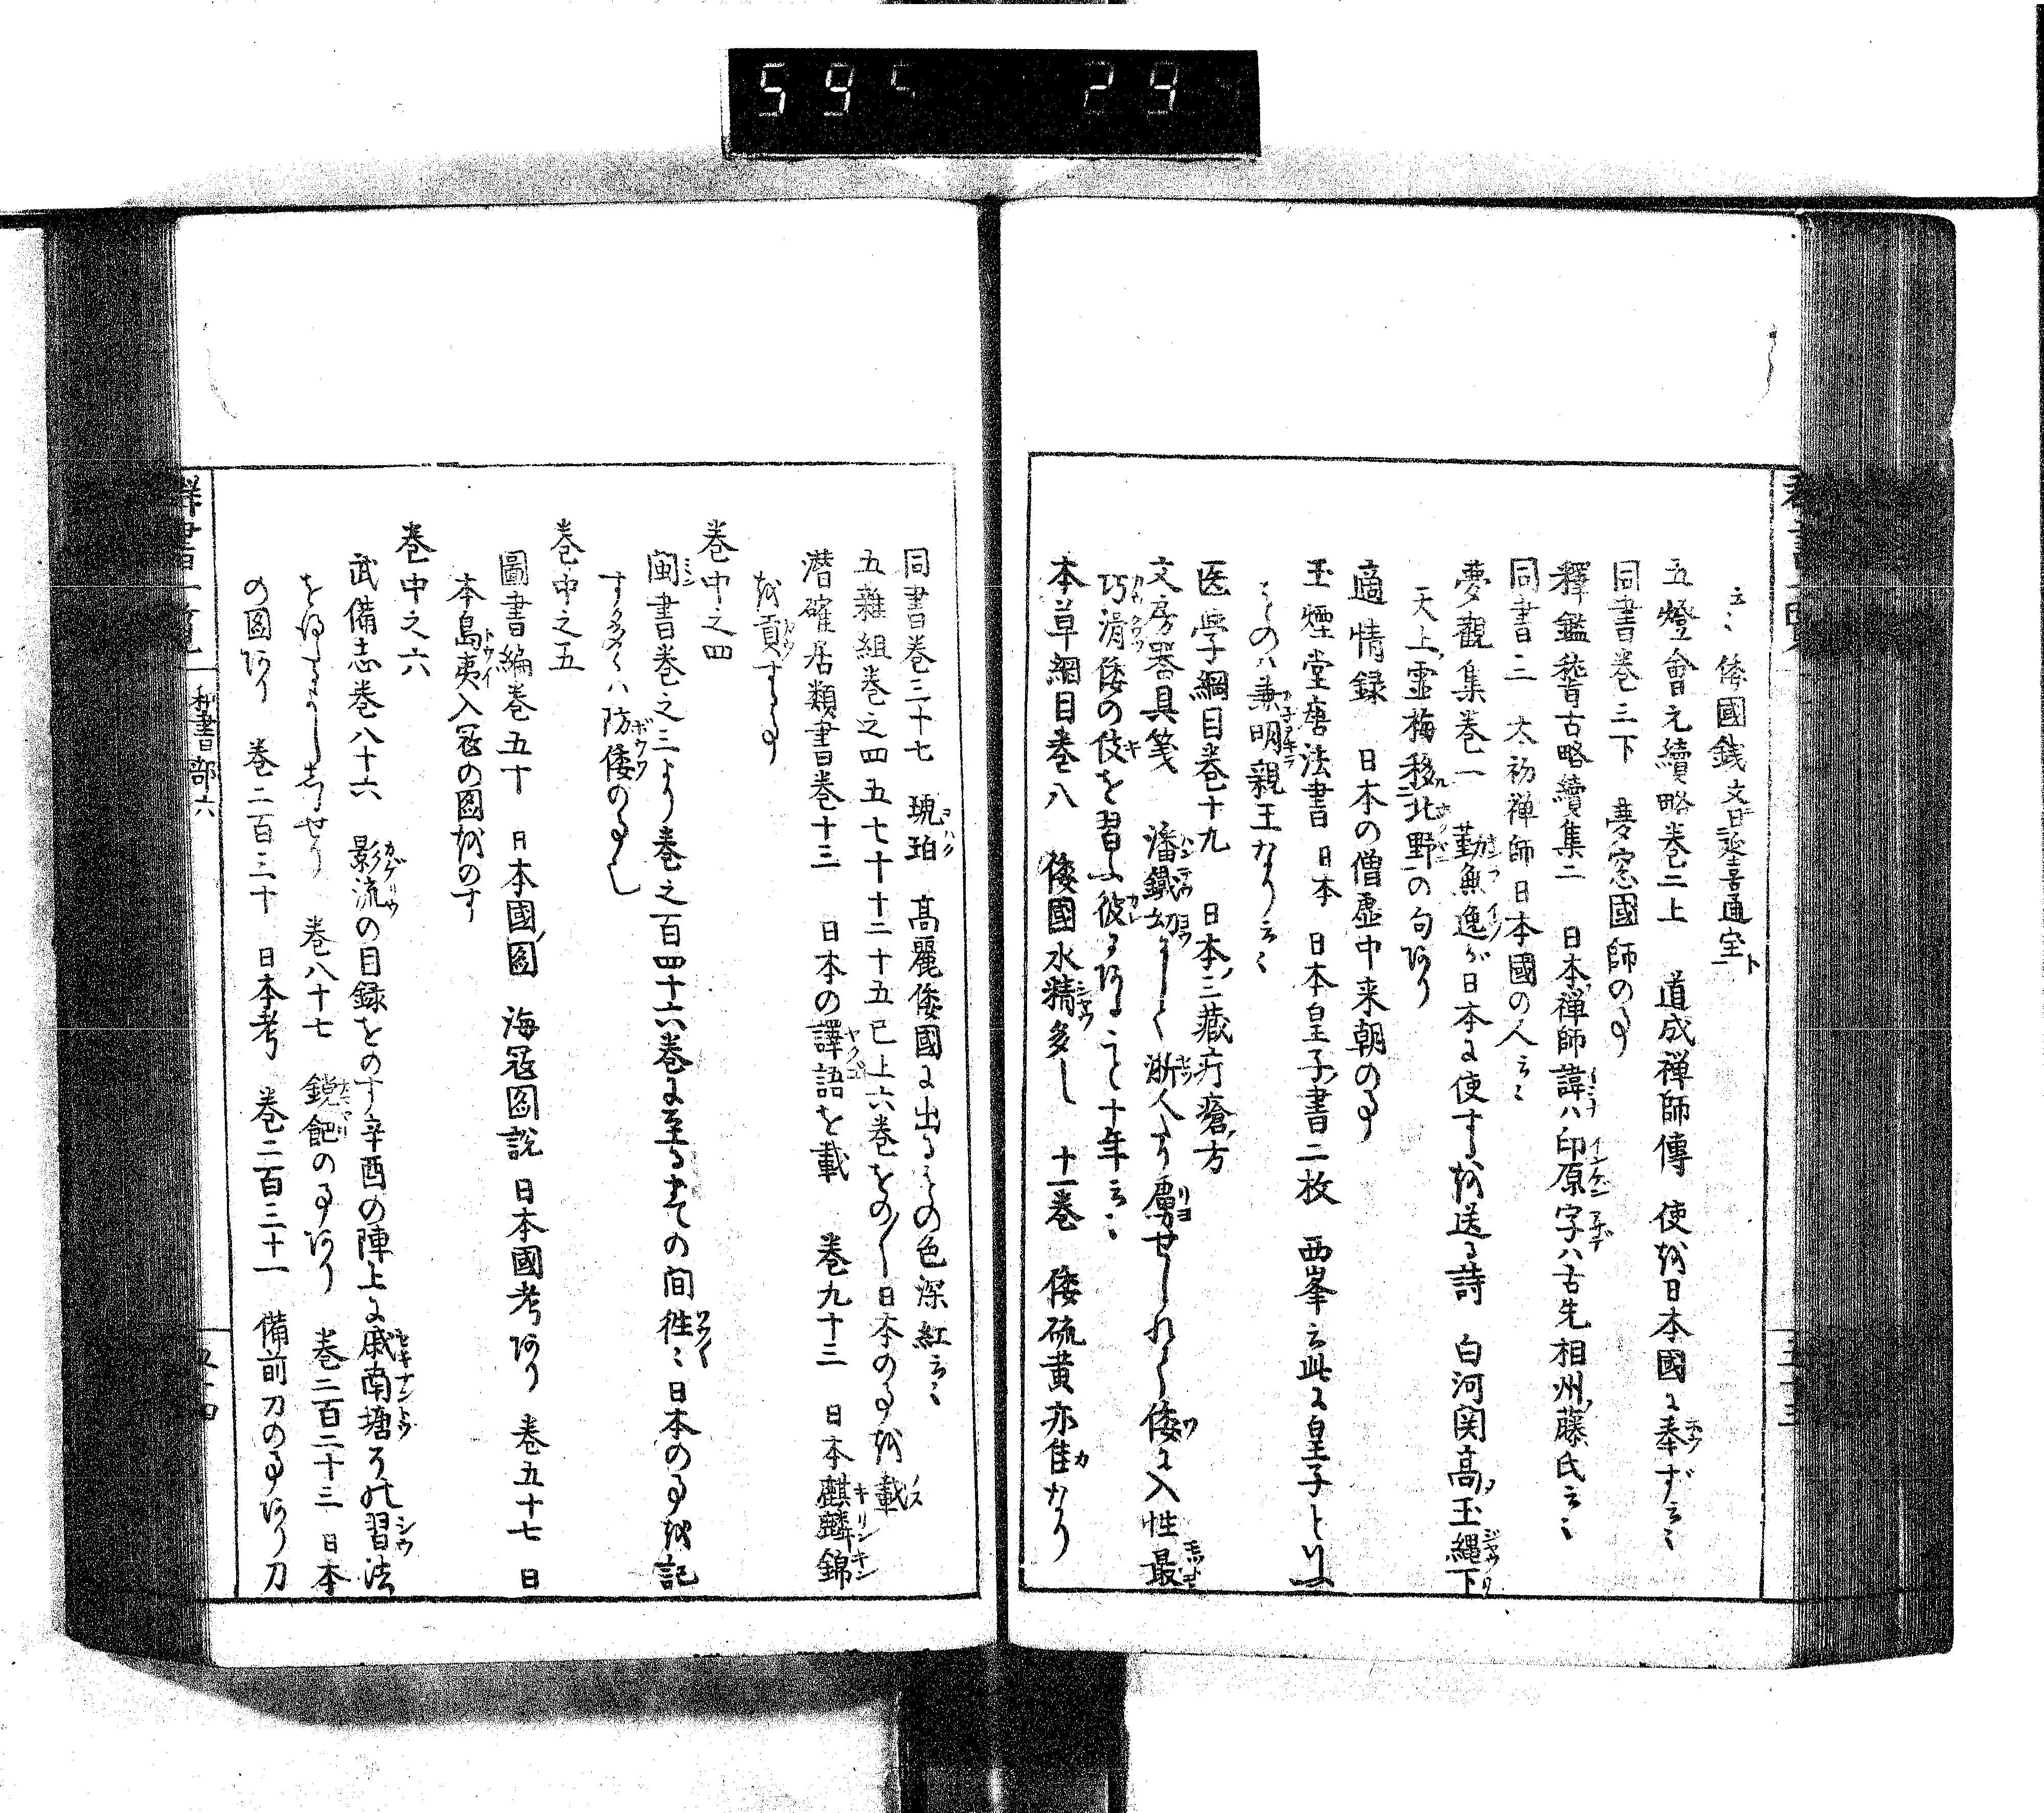 595 29
云〻 倭國錢文曰延喜通宝ト
五燈會元續略巻二上 道成禅師傳 使を日本國に奉ず云〻
同書巻三下 夢窓國師の事
釋鑑稽古略續集二 日本禅師諱ハ印原字ハ古先相州藤氏云〻
同書三 太初禅師日本國の人云〻
夢觀集巻一 勤無逸が日本に使するを送る詩 白河関高玉繩下
天上霊梅移北野の句あり
適情録 日本の僧虚中来朝の事
玉煙堂唐法書 日本 日本皇子書二枚 西峯云此に皇子といふ
ものハ兼明親王なり云〻
医学綱目巻十九 日本三藏疔瘡方
文房器具箋 潘鐵幼にして浙人より虜せられて倭に入性最
巧滑倭の伎を習ふ彼にあること十年云〻
本草綱目巻八 倭國水精多し 十一巻 倭硫黄亦佳なり
同書巻三十七 琥珀 高麗倭國に出るもの色深紅云〻
五雜組巻之四五七十十二十五已上六巻をの〱日本の事を載
潜確居類書巻十三 日本の譯語を載 巻九十三 日本麒麟錦
を貢する事
巻中之四
閩書巻之三より巻之百四十六巻に至るまての间徃〻日本の事を記
す多くハ防倭の事也
巻中之五
圖書編巻五十 日本國圖 海冦圖説 日本國考あり 巻五十七 日
本島夷入冦の圖をのす
巻中之六
武備志巻八十六 影流の目録をのす辛酉の陣上に戚南塘その習法
を得るよし志るせり 巻八十七 鏡鈀の事あり 巻二百二十三 日本
の圖あり 巻二百三十 日本考 巻二百三十一 備前刀の事あり刀
群書一覧 和書部六